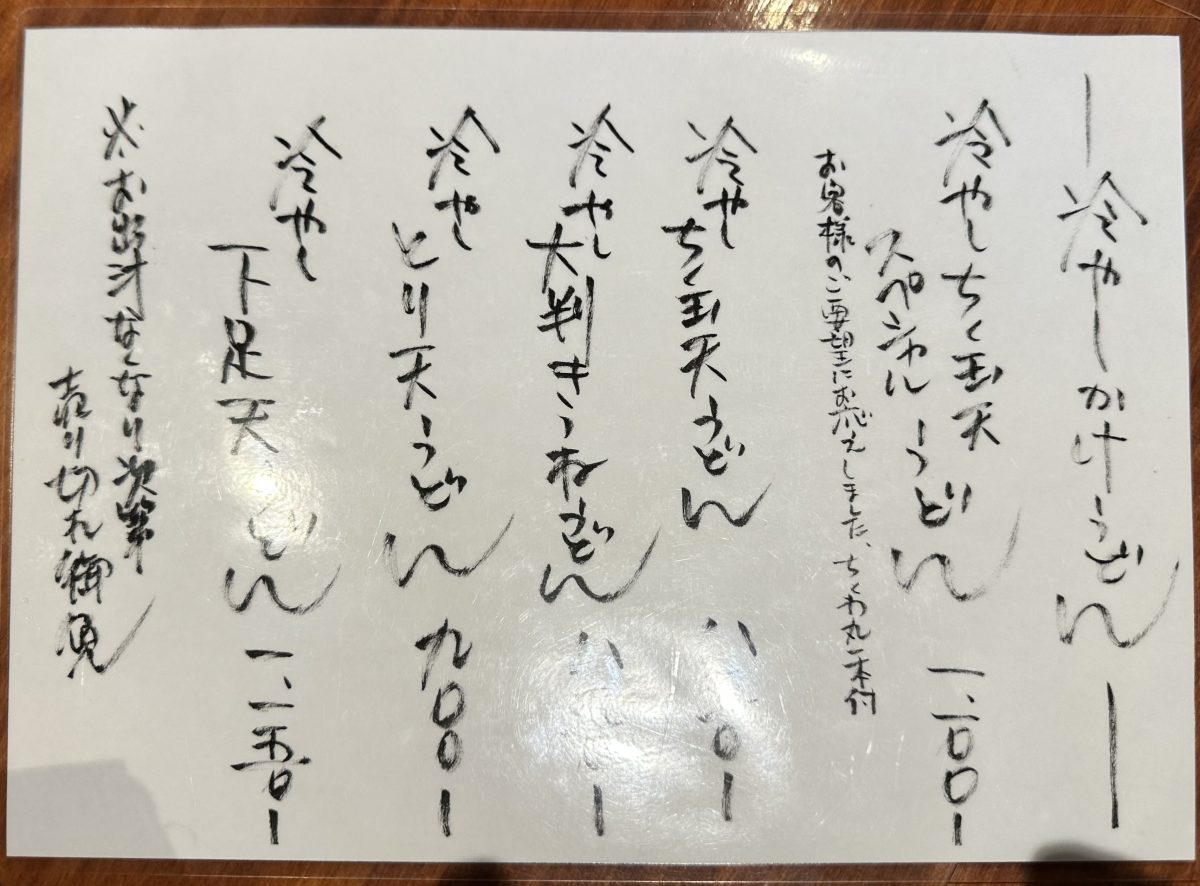 ー冷やしかけうどんー
冷やしちく玉天
スペシャルうどん 一、一〇〇ー
お客様のご要望にお応えしました、ちくわ丸一本付
冷やし
ちく玉天うどん
冷やし
大判きつねうどん
冷やし
とり天うどん 九〇〇ー
冷やし
下足天うどん 一、一五〇ー
※お出汁なくなり次第
売り切れ御免